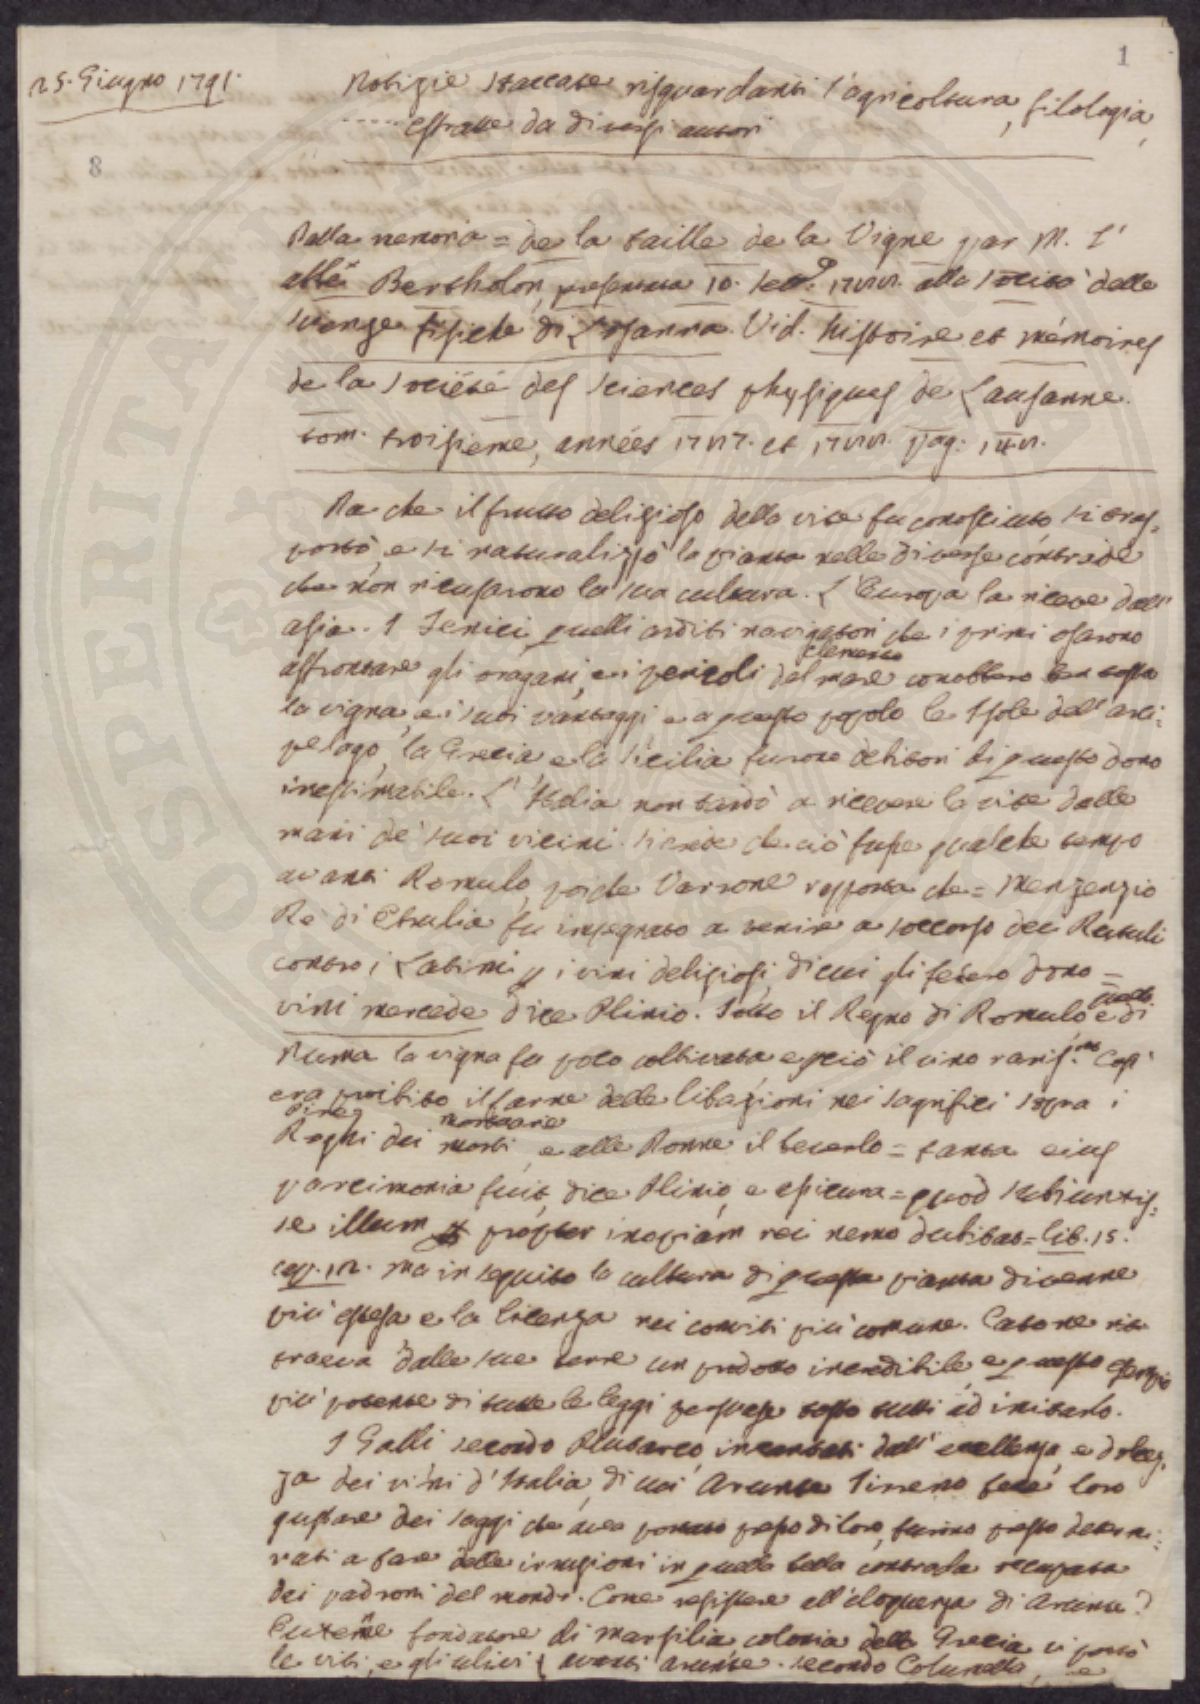 1
25. Giugno 1791.
Notizie staccate risguardanti l'agricoltura, filologia,
estratte da diversi autori
8
Dalla memoria = de la taille de la Vigne par M. l'
abbé Bertholon, presentata 10. Sett.e 1788. alla Società delle
scienze fisiche di Losanna. Vid. histoire et mémoires
de la Société des sciences physiques de Lausanne.
tom. troisieme, années 1787. et 1788. pag.
Da che il frutto delizioso della vite fu conosciuto si tras=
portò, e si naturalizzò la pianta nelle diverse contrade
che non ricusarono la sua cultura. L'Europa la riceve dall'
asia. I Fenici, quelli arditi navigatori che i primi osarono
affrontare gli oragani, e i pericoli del mare conobbero ben tosto
la vigna, e i suoi vantaggi, e a questo popolo le Isole dell'arci=
pelago, la Grecia e la Sicilia furono debitori di questo dono
inestimabile. L'Italia non tardò a ricevere la vite dalle
mani de' suoi vicini. Si crede che ciò fusse qualche tempo
avanti Romulo, poiche Varrone rapporta che = Menzenzio
Re di Etrulia fu impegnato a venire a soccorso dei Rutuli
contro i Latini p i vini deliziosi, di cui gli fecero dono =
vini mercede dice Plinio. Sotto il Regno di Romulo e di
Numa la vigna fu poco coltivata e perciò il vino rariss.mo Cosi
era proibito il farne delle libazioni nei sagrifici sopra i
Roghi dei morti, e alle Donne il beverlo = tanta eius
parcimonia fuit, dice Plinio, e = quod subiunxis=
se illum propter inopiam rei nemo dubitat = lib. 15.
cap. 12. ma in seguito la cultura di questa pianta divenne
più estesa e la licenza nei conviti più comune. Catone ri
traeva dalle sue terre un prodotto incredibile, e questo esempio
più potente di tutte le leggi persuase tosto tutti ad imitarlo.
I Galli secondo Plutarco, incantati dall'eccellenza, e dolcez=
za dei vini d'Italia, di cui Arunte Tirreno fece loro
gustare dei saggi che avea portato presso di loro, furono presto determi=
nati a fare delle irruzioni in quella bella contrada occupata
dai padroni del mondo. Come resistere all'eloquenza di Arunte?
Euxene fondatore di Marsilia colonia della Grecia vi portò
le viti, e gli ulivi avanti Arunte. secondo Columella, e